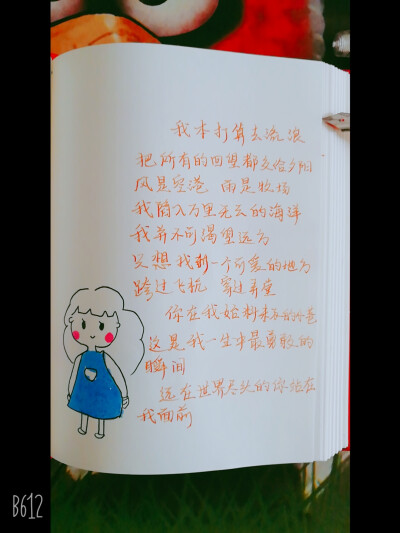 我本打算去流浪
把所有的回望都交给夕阳
风是空港 雨是牧场
我踏入万里无云的海洋
我并不可渴望远方
只想找到一个可爱的地方
跨过飞机 穿过弄堂
你在我始料未及的小巷
这是我一生中最勇敢的
瞬间
远在世界尽头的你站在
我面前
B612